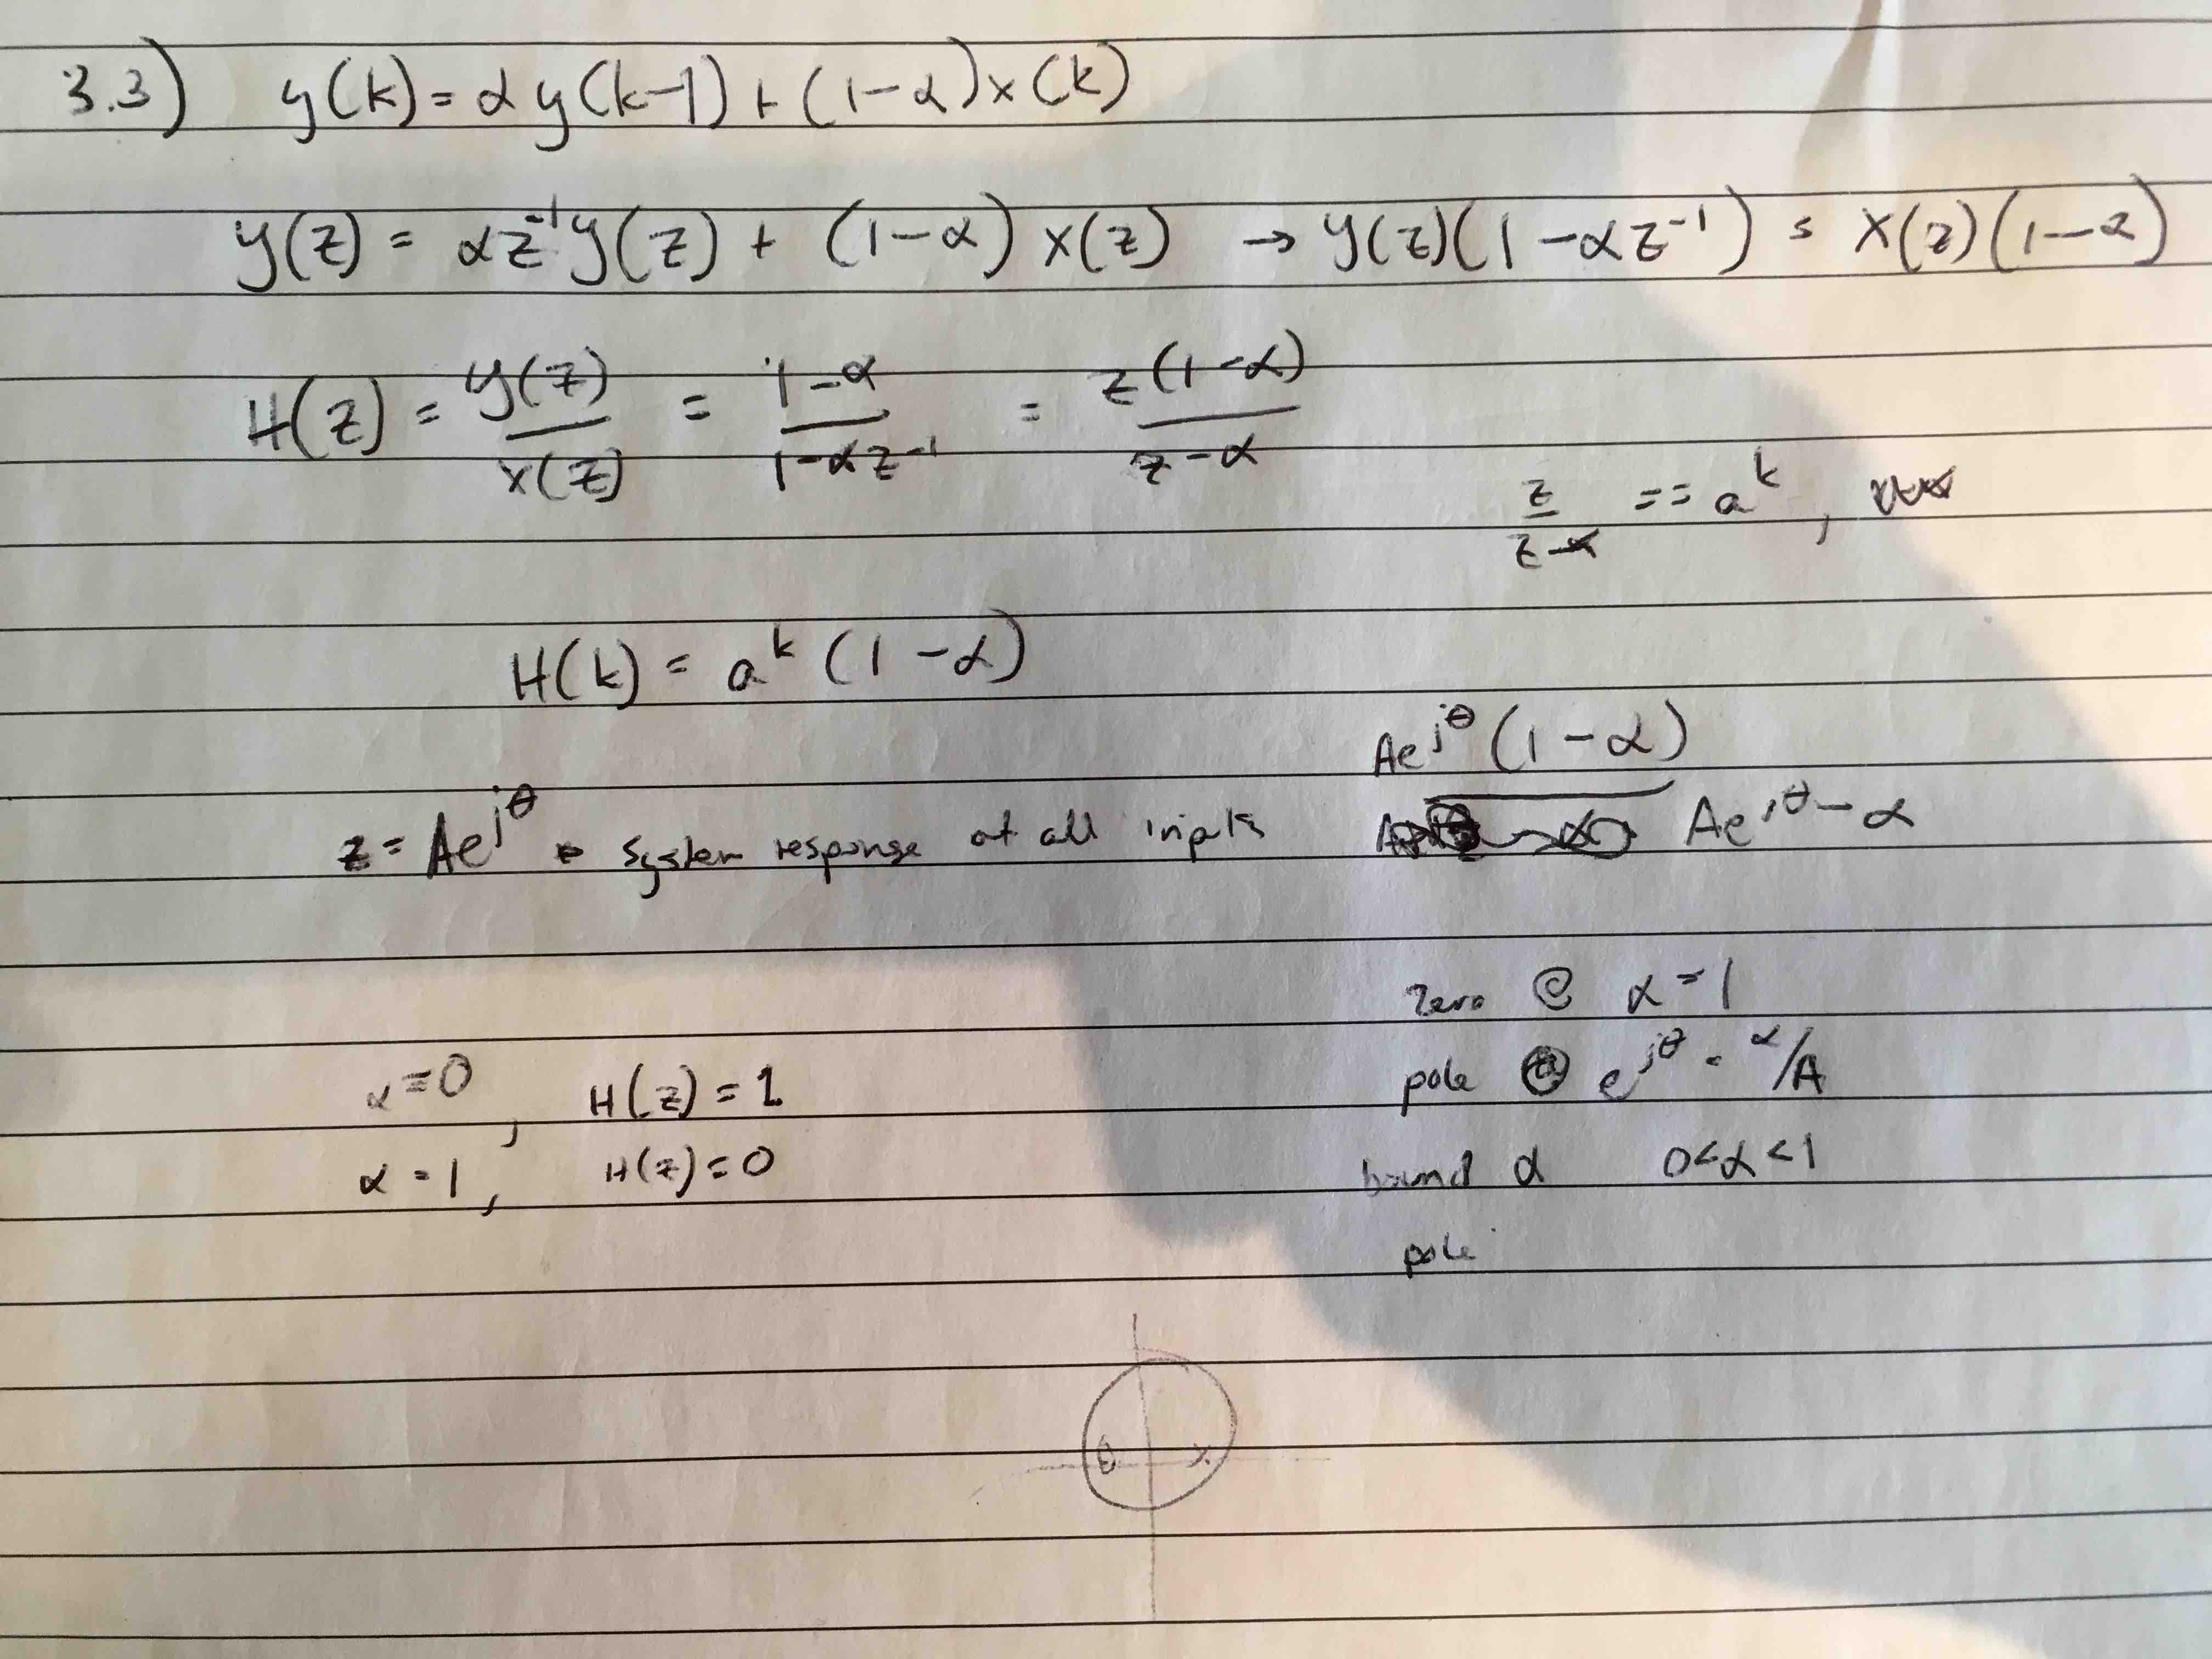 3.3) y(k) = αy(k-1) + (1-α)x(k)
y(z) = αz⁻¹y(z) + (1-α) x(z) → y(z)(1-αz⁻¹) = x(z)(1-α)
H(z) = y(z)/x(z) = 1-α/1-αz⁻¹ = z(1-α)/z-α
z/z-α == aᵏ,
H(k) = aᵏ(1-α)
Ae^jθ(1-α)/Ae^jθ-α
z = Ae^jθ system response at all inputs
zero @ α = 1
pole @ e^jθ = α/A
α = 0, H(z) = 1
α = 1, H(z) = 0
bound α 0<α<1
pole
θ x